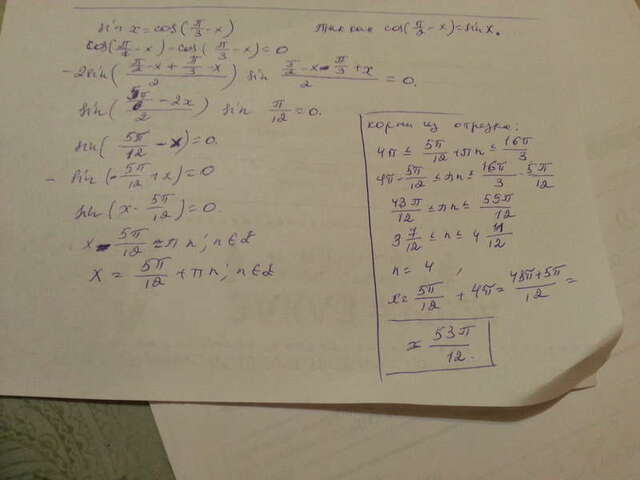 sin x = cos(π/3 - x)
Так как cos(π/2 - x) = sin x.
cos(π/2 - x) - cos(π/3 - x) = 0
- 2 sin((π/2 - x + π/3 - x)/2) sin (π/2 - x - π/3 + x)/2 = 0.
sin((5π/6 - 2x)/2) sin π/12 = 0.
sin(5π/12 - x) = 0.
- sin(-5π/12 + x) = 0
sin(x - 5π/12) = 0.
x - 5π/12 = πn; n∈Z
x = 5π/12 + πn; n∈Z
корни из отрезка:
4π ≤ 5π/12 + πn ≤ 16π/3
4π - 5π/12 ≤ πn ≤ 16π/3 - 5π/12
43π/12 ≤ πn ≤ 59π/12
3 7/12 ≤ n ≤ 4 11/12
n = 4,
x = 5π/12 + 4π = (48π + 5π)/12 =
= 53π/12.